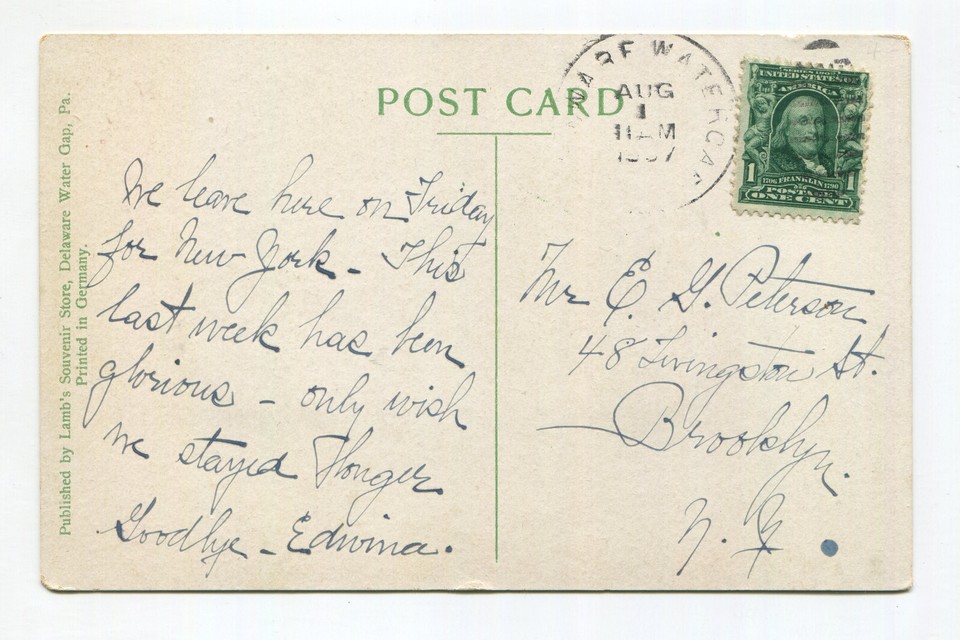 Published by Lamb's Souvenir Store, Delaware Water Gap, Pa.
Printed in Germany.
POST CARD
WARE WATER GAP
AUG
1
11 AM
1907
SERIES 1902
UNITED STATES OF
AMERICA
1 1
1706 FRANKLIN 1790
POSTAGE
ONE CENT
We leave here on Friday
for New York - This
last week has been
glorious - only wish
we stayed longer.
Goodbye - Edwina.
Mr E. G. Peterson
48 Livingston St.
Brooklyn.
N. Y